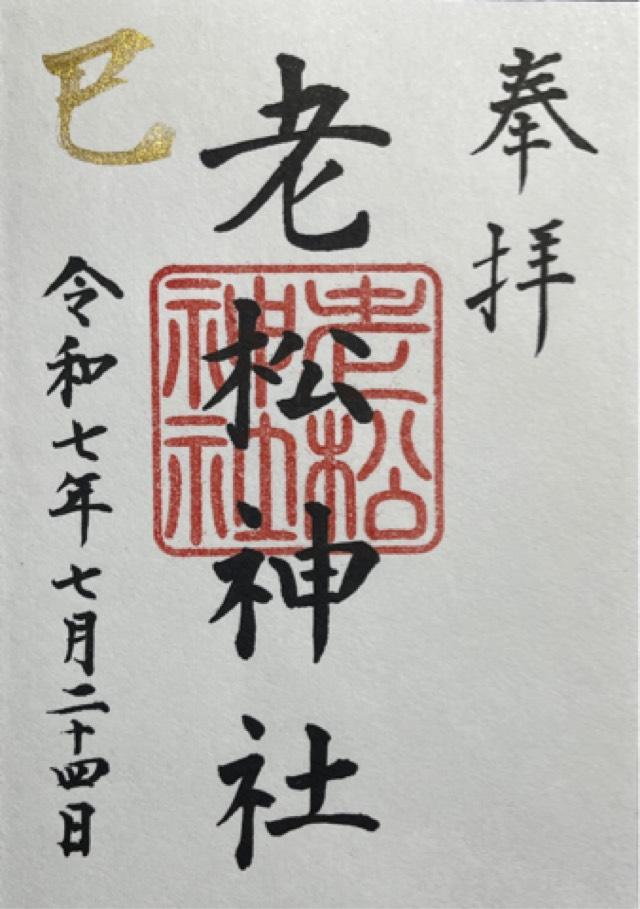 奉拝
老松神社
老松
神社
巳
令和七年七月二十四日